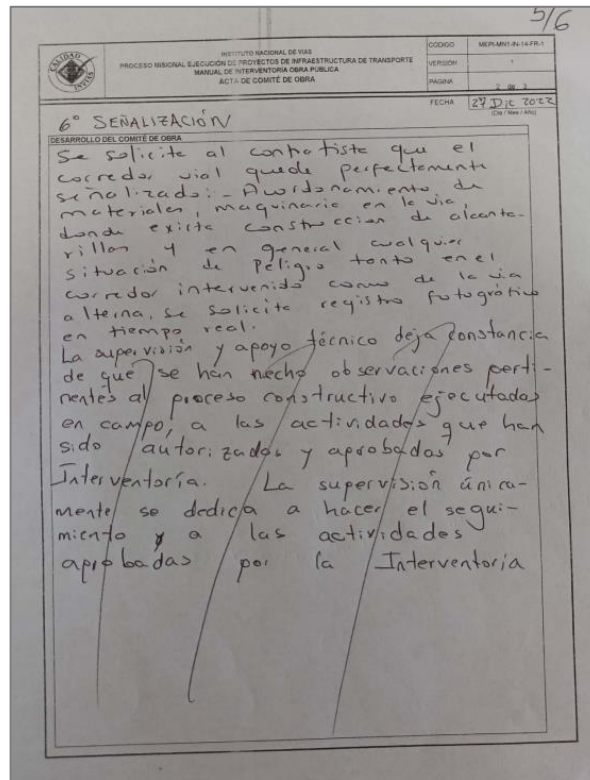 5/6
CALIDAD
INVIAS
INSTITUTO NACIONAL DE VIAS
PROCESO MISIONAL EJECUCIÓN DE PROYECTOS DE INFRAESTRUCTURA DE TRANSPORTE
MANUAL DE INTERVENTORIA OBRA PÚBLICA
ACTA DE COMITÉ DE OBRA
CODIGO MEPI-MN1-IN-14-FR-1
VERSIÓN 1
PAGINA 2 de 3
FECHA 27 Dic 2022
(Día / Mes / Año)
6° SEÑALIZACIÓN
DESARROLLO DEL COMITÉ DE OBRA
Se solicite al contratiste que el
corredor vial quede perfectamente
señalizado: - Acordonamiento de
materiales, maquinaria en la via,
donde exista construccion de alcanta-
rillas y en general cualquier
situación de Peligro tanto en el
corredor intervenido como de la via
alterna, se solicite registro fotográfico
en tiempo real.
La supervisión y apoyo técnico deja constancia
de que se han hecho observaciones perti-
nentes al proceso constructivo ejecutadas
en campo, a las actividades que han
sido autorizadas y aprobadas por
Interventoría. La supervisión única-
mente se dedica a hacer el segui-
miento y a las actividades
aprobadas por la Interventoría